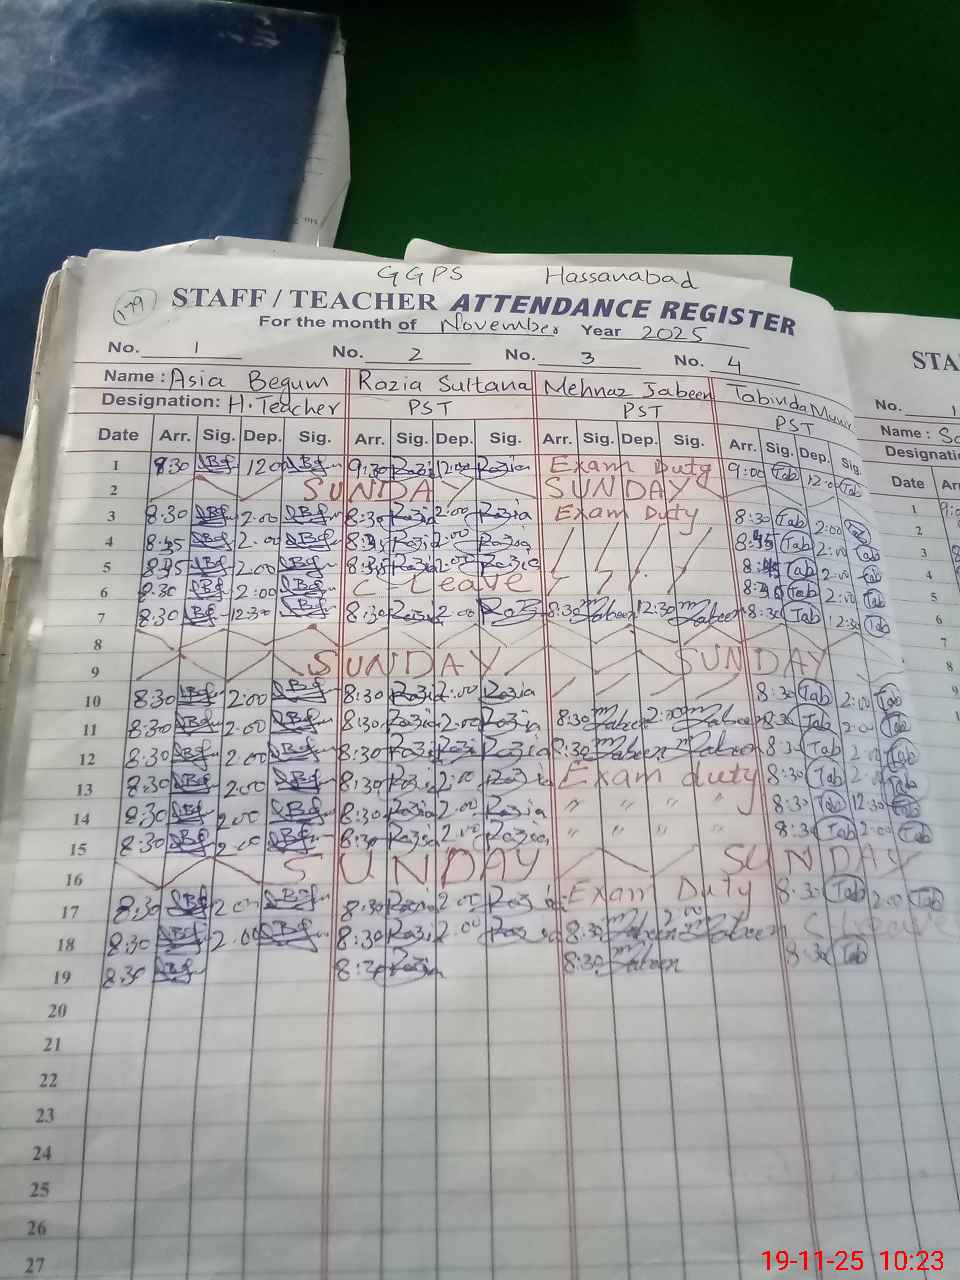 GGPS Hassanabad
179
STAFF / TEACHER ATTENDANCE REGISTER
For the month of November Year 2025
No. 1 No. 2 No. 3 No. 4
Name : Asia Begum Razia Sultana Mehnaz Jabeen Tabinda
Designation: H.Teacher PST PST PST
Date Arr. Sig. Dep. Sig. Arr. Sig. Dep. Sig. Arr. Sig. Dep. Sig. Arr. Sig. Dep. Sig.
1 8:30 12:00 9:30 Razia 12:00 Razia Exam Duty 9:00 Tab 12:0 Tab
2 SUNDAY SUNDAY
3 8:30 2:00 8:30 Razia 2:00 Razia Exam Duty 8:30 Tab 2:00
4 8:45 2:00 8:45 Razia 2:00 Razia / / / / 8:45 Tab 2:00 Tab
5 8:45 2:00 8:45 Razia 2:00 Razia Tab 2:00 Tab
6 8:30 2:00 C Leave Tab 2:00 Tab
7 8:30 12:30 8:30 Razia 2:00 8:30 Jabeen 12:30 Jabeen 8:30 Tab 12:30 Tab
8
9 SUNDAY SUNDAY
10 8:30 2:00 8:30 Razia 2:00 Razia / / / / 8:30 Tab 2:00 Tab
11 8:30 2:00 8:30 Razia 2:00 Razia 8:30 Jabeen 2:00 Jabeen 8:30 Tab 2:00 Tab
12 8:30 2:00 8:30 Razia Razia 8:30 Jabeen Jabeen 8:30 Tab 2:00 Tab
13 8:30 2:00 8:30 Razia 2:00 Razia Exam duty 8:30 Tab 2:00 Tab
14 8:30 2:00 8:30 Razia 2:00 Razia " " " " 8:30 Tab 12:30 Tab
15 8:30 2:00 8:30 Razia 2:00 Razia " " " " 8:30 Tab 2:00 Tab
16 SUNDAY SUNDAY
17 8:30 2:00 8:30 Razia 2:00 Razia Exam Duty 8:30 Tab 2:00 Tab
18 8:30 2:00 8:30 Razia 2:00 Razia 8:30 Jabeen 2:00 Jabeen C Leave
19 8:30 8:30 Razia 8:30 Jabeen 8:30 Tab
20
21
22
23
24
25
26
27
STA
No. 1
Name : Sa
Designati
Date Ar
1
2
3
4
5
6
7
8
19-11-25 10:23